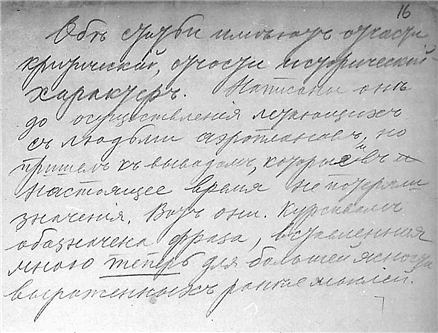 16
Обѣ статьи имѣютъ отчасти
критическій, отчасти историческій
характеръ. Написаны онѣ
до осуществленія летающихъ
съ людьми аэроплановъ, но
пришелъ къ выводамъ, которые въ
настоящее время не потеряли
значенія. Вотъ они. Курсивомъ
обозначена фраза, вставленная
мною теперь для большей ясности
выраженныхъ ранѣе мыслей.